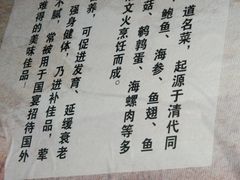 道名菜，起源于清代同
、鲍鱼、海参、鱼翅、鱼
菇、鹌鹑蛋、海螺肉等多
文火烹饪而成。
养，可促进发育、延缓衰老
强身健体，乃进补佳品，荤
不腻，常被用于国宴招待国外
难得的美味佳品